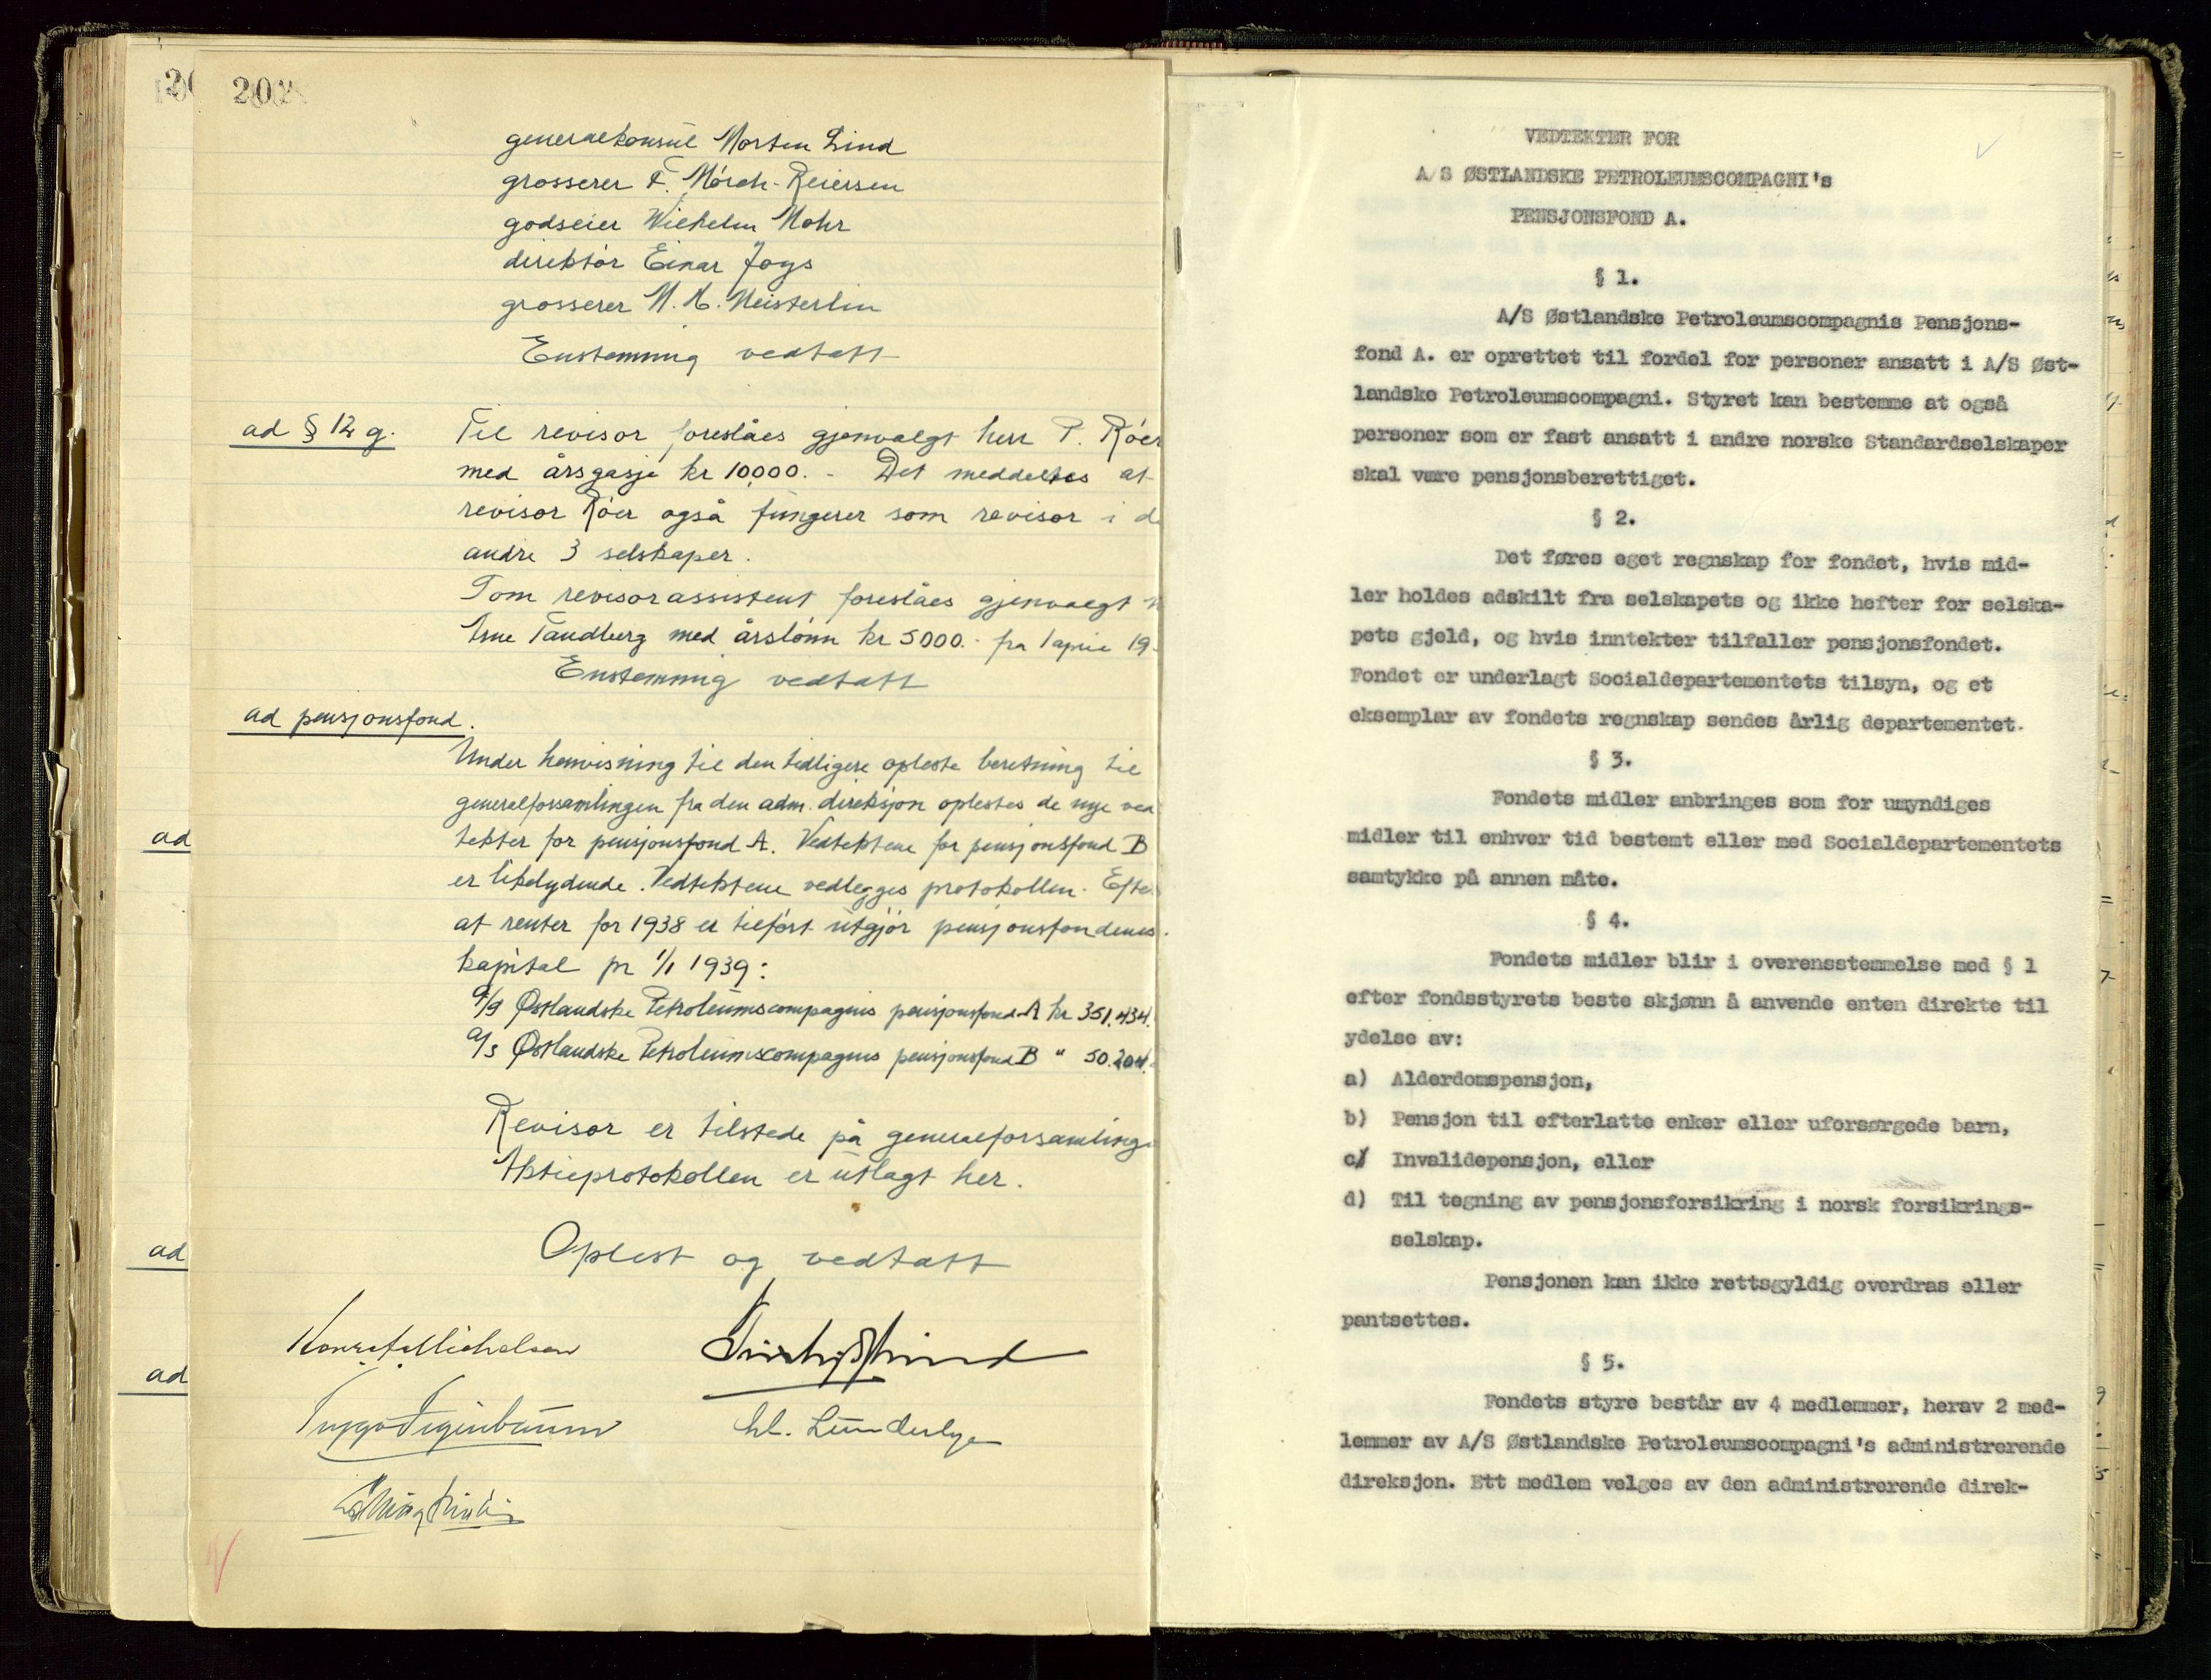 202
generalkonsul Morten Lind
grosserer F. Mørch-Reiersen
godseier Wilhelm Mohr
direktør Einar Joys
grosserer N. H. Meisterlin
Enstemmig vedtatt
ad § 12 g.
Til revisor foreslåes gjenvalgt herr P. Röer
med årsgasje kr 10,000.- Det meddeltes at
revisor Röer også fungerer som revisor i de
andre 3 selskaper.
Som revisorassistent foreslåes gjenvalgt
Arne Tandberg med årslønn kr 5000.- fra 1 april 19
Enstemmig vedtatt
ad pensjonsfond.
Under henvisning til den tidligere opleste beretning til
generalforsamlingen fra den adm. direksjon oplestes de nye ved
tekter for pensjonsfond A. Vedtektene for pensjonsfond B
er likelydende. Vedtektene vedlegges protokollen. Efter
at renter for 1938 er tilført utgjør pensjonsfondenes
kapital pr 1/1 1939:
A/S Østlandske Petroleumscompagnis pensjonsfond A kr 351.434.
A/S Østlandske Petroleumscompagnis pensjonsfond B " 50.204.
Revisor er tilstede på generalforsamlinge
Aktieprotokollen er utlagt her.
Oplest og vedtatt
ad
ad
ad
VEDTEKTER FOR
A/S ØSTLANDSKE PETROLEUMSCOMPAGNI's
PENSJONSFOND A.
§ 1.
A/S Østlandske Petroleumscompagnis Pensjons-
fond A. er oprettet til fordel for personer ansatt i A/S Øst-
landske Petroleumscompagni. Styret kan bestemme at også
personer som er fast ansatt i andre norske Standardselskaper
skal være pensjonsberettiget.
§ 2.
Det føres eget regnskap for fondet, hvis mid-
ler holdes adskilt fra selskapets og ikke hefter for selska-
pets gjeld, og hvis inntekter tilfaller pensjonsfondet.
Fondet er underlagt Socialdepartementets tilsyn, og et
eksemplar av fondets regnskap sendes årlig departementet.
§ 3.
Fondets midler anbringes som for umyndiges
midler til enhver tid bestemt eller med Socialdepartementets
samtykke på annen måte.
§ 4.
Fondets midler blir i overensstemmelse med § 1
efter fondsstyrets beste skjønn å anvende enten direkte til
ydelse av:
a) Alderdomspensjon,
b) Pensjon til efterlatte enker eller uforsørgede barn,
c) Invalidepensjon, eller
d) Til tegning av pensjonsforsikring i norsk forsikrings-
selskap.
Pensjonen kan ikke rettsgyldig overdras eller
pantsettes.
§ 5.
Fondets styre består av 4 medlemmer, herav 2 med-
lemmer av A/S Østlandske Petroleumscompagni's administrerende
direksjon. Ett medlem velges av den administrerende direk-